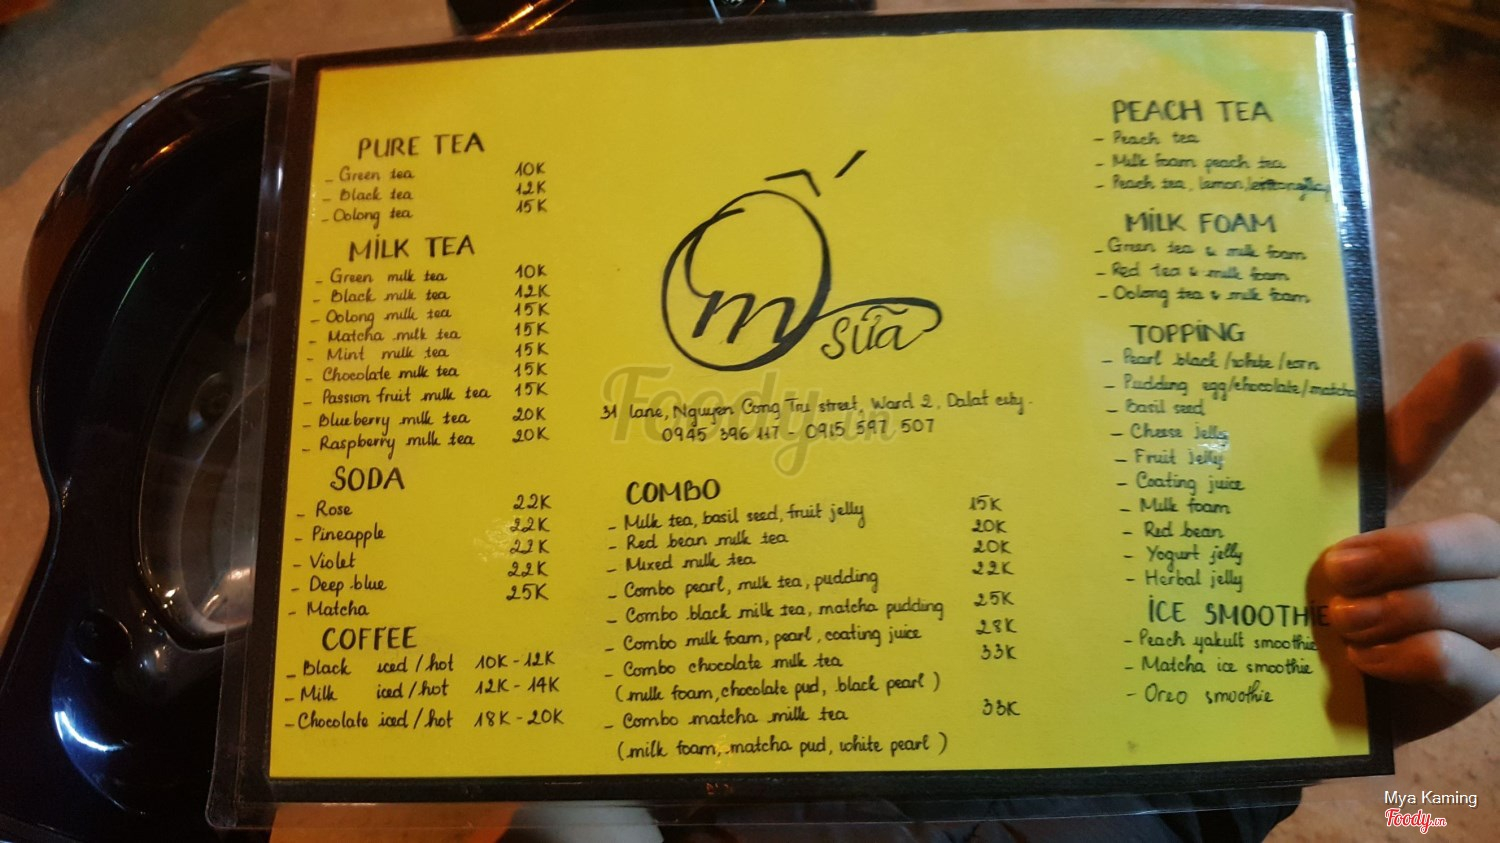 PURE TEA
- Green tea 10K
- Black tea 12K
- Oolong tea 15K
MILK TEA
- Green milk tea 10K
- Black milk tea 12K
- Oolong milk tea 15K
- Matcha milk tea 15K
- Mint milk tea 15K
- Chocolate milk tea 15K
- Passion fruit milk tea 15K
- Blueberry milk tea 20K
- Raspberry milk tea 20K
SODA
- Rose 22K
- Pineapple 22K
- Violet 22K
- Deep blue 22K
- Matcha 25K
COFFEE
- Black iced / hot 10K - 12K
- Milk iced / hot 12K - 14K
- Chocolate iced / hot 18K - 20K
Ố
m
sữa
31 lane, Nguyen Cong Tru street, Ward 2, Dalat city.
0945 396 117 - 0915 597 507
COMBO
- Milk tea, basil seed, fruit jelly 15K
- Red bean milk tea 20K
- Mixed milk tea 20K
- Combo pearl, milk tea, pudding 22K
- Combo black milk tea, matcha pudding 25K
- Combo milk foam, pearl, coating juice 28K
- Combo chocolate milk tea 33K
(milk foam, chocolate pud, black pearl)
- Combo matcha milk tea 33K
(milk foam, matcha pud, white pearl)
PEACH TEA
- Peach tea
- Milk foam peach tea
- Peach tea, lemon,
MILK FOAM
- Green tea & milk foam
- Red tea & milk foam
- Oolong tea & milk foam
TOPPING
- Pearl black/white/corn
- Pudding egg/chocolate/matcha
- Basil seed
- Cheese jelly
- Fruit jelly
- Coating juice
- Milk foam
- Red bean
- Yogurt jelly
- Herbal jelly
ICE SMOOTHIE
- Peach yakult smoothie
- Matcha ice smoothie
- Oreo smoothie
Foody.vn
Mya Kaming
Foody.vn